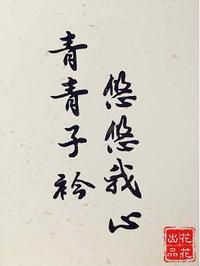 青青子衿
悠悠我心
花花出品